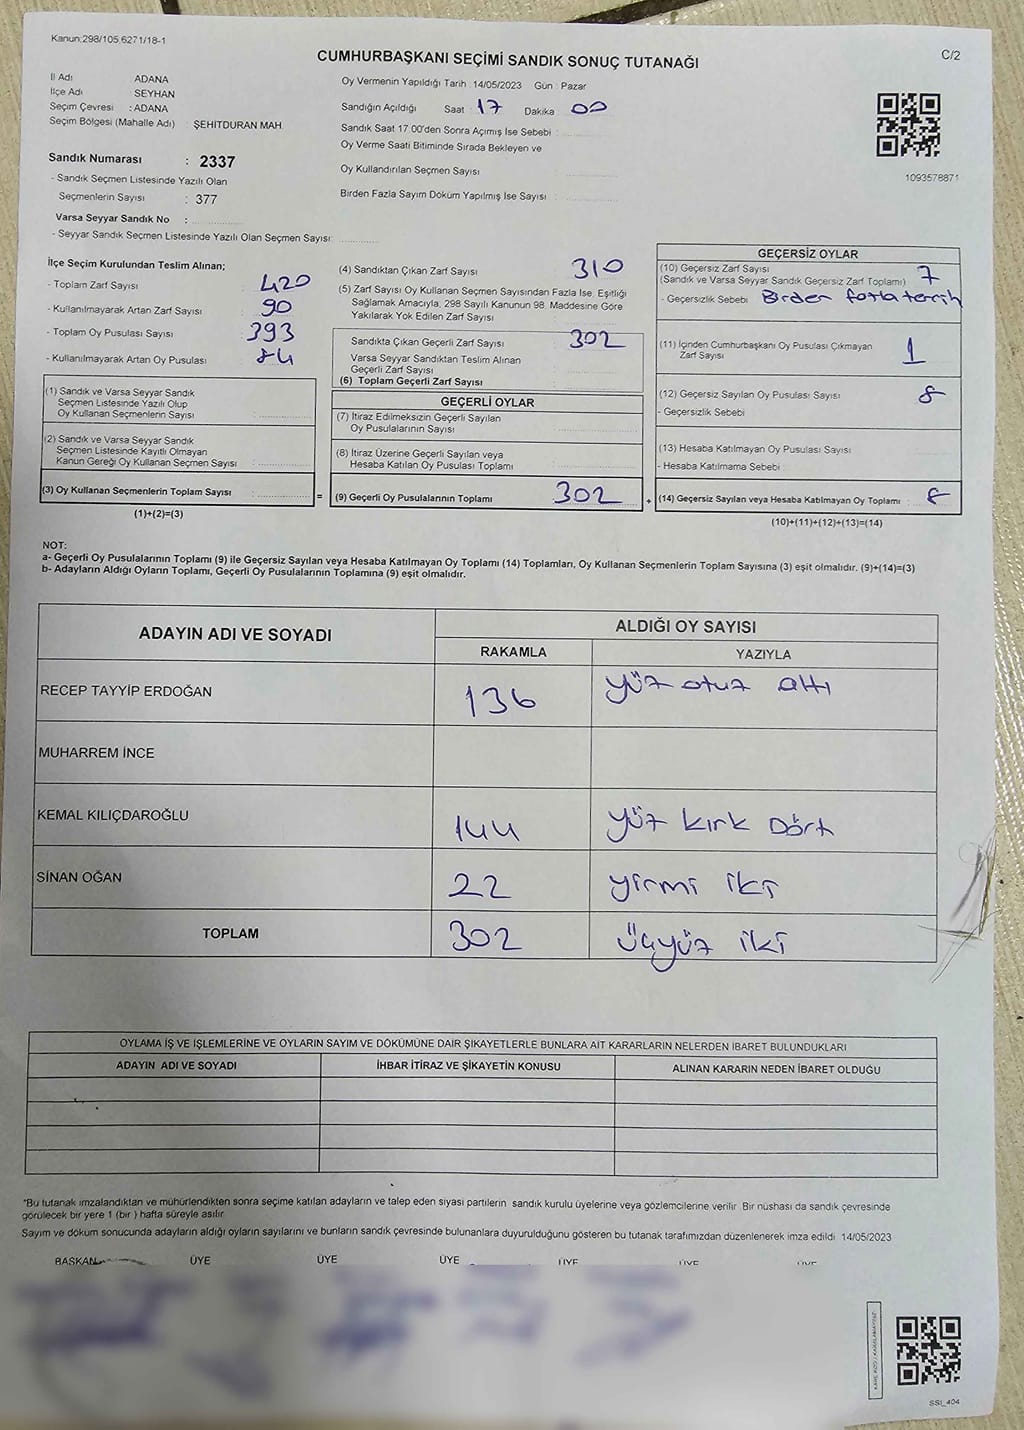 Kanun:298/105,6271/18-1
CUMHURBAŞKANI SEÇİMİ SANDIK SONUÇ TUTANAĞI
C/2
İl Adı ADANA
İlçe Adı SEYHAN
Seçim Çevresi : ADANA
Seçim Bölgesi (Mahalle Adı) : ŞEHİTDURAN MAH.
Oy Vermenin Yapıldığı Tarih : 14/05/2023 Gün : Pazar
Sandığın Açıldığı Saat : 17 Dakika 00
Sandık Saat 17.00'den Sonra Açımış İse Sebebi :
Oy Verme Saati Bitiminde Sırada Bekleyen ve
Oy Kullandırılan Seçmen Sayısı
Birden Fazla Sayım Döküm Yapılmış İse Sayısı :
1093578871
Sandık Numarası : 2337
- Sandık Seçmen Listesinde Yazılı Olan
Seçmenlerin Sayısı : 377
Varsa Seyyar Sandık No :
- Seyyar Sandık Seçmen Listesinde Yazılı Olan Seçmen Sayısı:
İlçe Seçim Kurulundan Teslim Alınan;
- Toplam Zarf Sayısı : 420
- Kullanılmayarak Artan Zarf Sayısı : 90
- Toplam Oy Pusulası Sayısı : 393
- Kullanılmayarak Artan Oy Pusulası : 84
(1) Sandık ve Varsa Seyyar Sandık
Seçmen Listesinde Yazılı Olup
Oy Kullanan Seçmenlerin Sayısı
(2) Sandık ve Varsa Seyyar Sandık
Seçmen Listesinde Kayıtlı Olmayan
Kanun Gereği Oy Kullanan Seçmen Sayısı
(3) Oy Kullanan Seçmenlerin Toplam Sayısı :
(1)+(2)=(3)
=
(4) Sandıktan Çıkan Zarf Sayısı 310
(5) Zarf Sayısı Oy Kullanan Seçmen Sayısından Fazla İse, Eşitliği
Sağlamak Amacıyla, 298 Sayılı Kanunun 98. Maddesine Göre
Yakılarak Yok Edilen Zarf Sayısı
Sandıkta Çıkan Geçerli Zarf Sayısı 302
Varsa Seyyar Sandıktan Teslim Alınan
Geçerli Zarf Sayısı
(6) Toplam Geçerli Zarf Sayısı
GEÇERLİ OYLAR
(7) İtiraz Edilmeksizin Geçerli Sayılan
Oy Pusulalarının Sayısı
(8) İtiraz Üzerine Geçerli Sayılan veya
Hesaba Katılan Oy Pusulası Toplamı
(9) Geçerli Oy Pusulalarının Toplamı 302
+
GEÇERSİZ OYLAR
(10) Geçersiz Zarf Sayısı 7
(Sandık ve Varsa Seyyar Sandık Geçersiz Zarf Toplamı)
- Geçersizlik Sebebi Birden fazla tercih
(11) İçinden Cumhurbaşkanı Oy Pusulası Çıkmayan
Zarf Sayısı 1
(12) Geçersiz Sayılan Oy Pusulası Sayısı 8
- Geçersizlik Sebebi
(13) Hesaba Katılmayan Oy Pusulası Sayısı
- Hesaba Katılmama Sebebi
(14) Geçersiz Sayılan veya Hesaba Katılmayan Oy Toplamı : 8
(10)+(11)+(12)+(13)=(14)
NOT:
a- Geçerli Oy Pusulalarının Toplamı (9) ile Geçersiz Sayılan veya Hesaba Katılmayan Oy Toplamı (14) Toplamları, Oy Kullanan Seçmenlerin Toplam Sayısına (3) eşit olmalıdır. (9)+(14)=(3)
b- Adayların Aldığı Oyların Toplamı, Geçerli Oy Pusulalarının Toplamına (9) eşit olmalıdır.
ADAYIN ADI VE SOYADI
ALDIĞI OY SAYISI
RAKAMLA YAZIYLA
RECEP TAYYİP ERDOĞAN 136 yüz otuz altı
MUHARREM İNCE
KEMAL KILIÇDAROĞLU 144 yüz kırk Dört
SİNAN OĞAN 22 yirmi iki
TOPLAM 302 üçyüz iki
OYLAMA İŞ VE İŞLEMLERİNE VE OYLARIN SAYIM VE DÖKÜMÜNE DAİR ŞİKAYETLERLE BUNLARA AİT KARARLARIN NELERDEN İBARET BULUNDUKLARI
ADAYIN ADI VE SOYADI İHBAR İTİRAZ VE ŞİKAYETİN KONUSU ALINAN KARARIN NEDEN İBARET OLDUĞU
*Bu tutanak imzalandıktan ve mühürlendikten sonra seçime katılan adayların ve talep eden siyasi partilerin sandık kurulu üyelerine veya gözlemcilerine verilir. Bir nüshası da sandık çevresinde
görülecek bir yere 1 (bir ) hafta süreyle asılır.
Sayım ve döküm sonucunda adayların aldığı oyların sayılarını ve bunların sandık çevresinde bulunanlara duyurulduğunu gösteren bu tutanak tarafımızdan düzenlenerek imza edildi. 14/05/2023
BAŞKAN ÜYE ÜYE ÜYE ÜYE ÜYE ÜYE
SSI_404